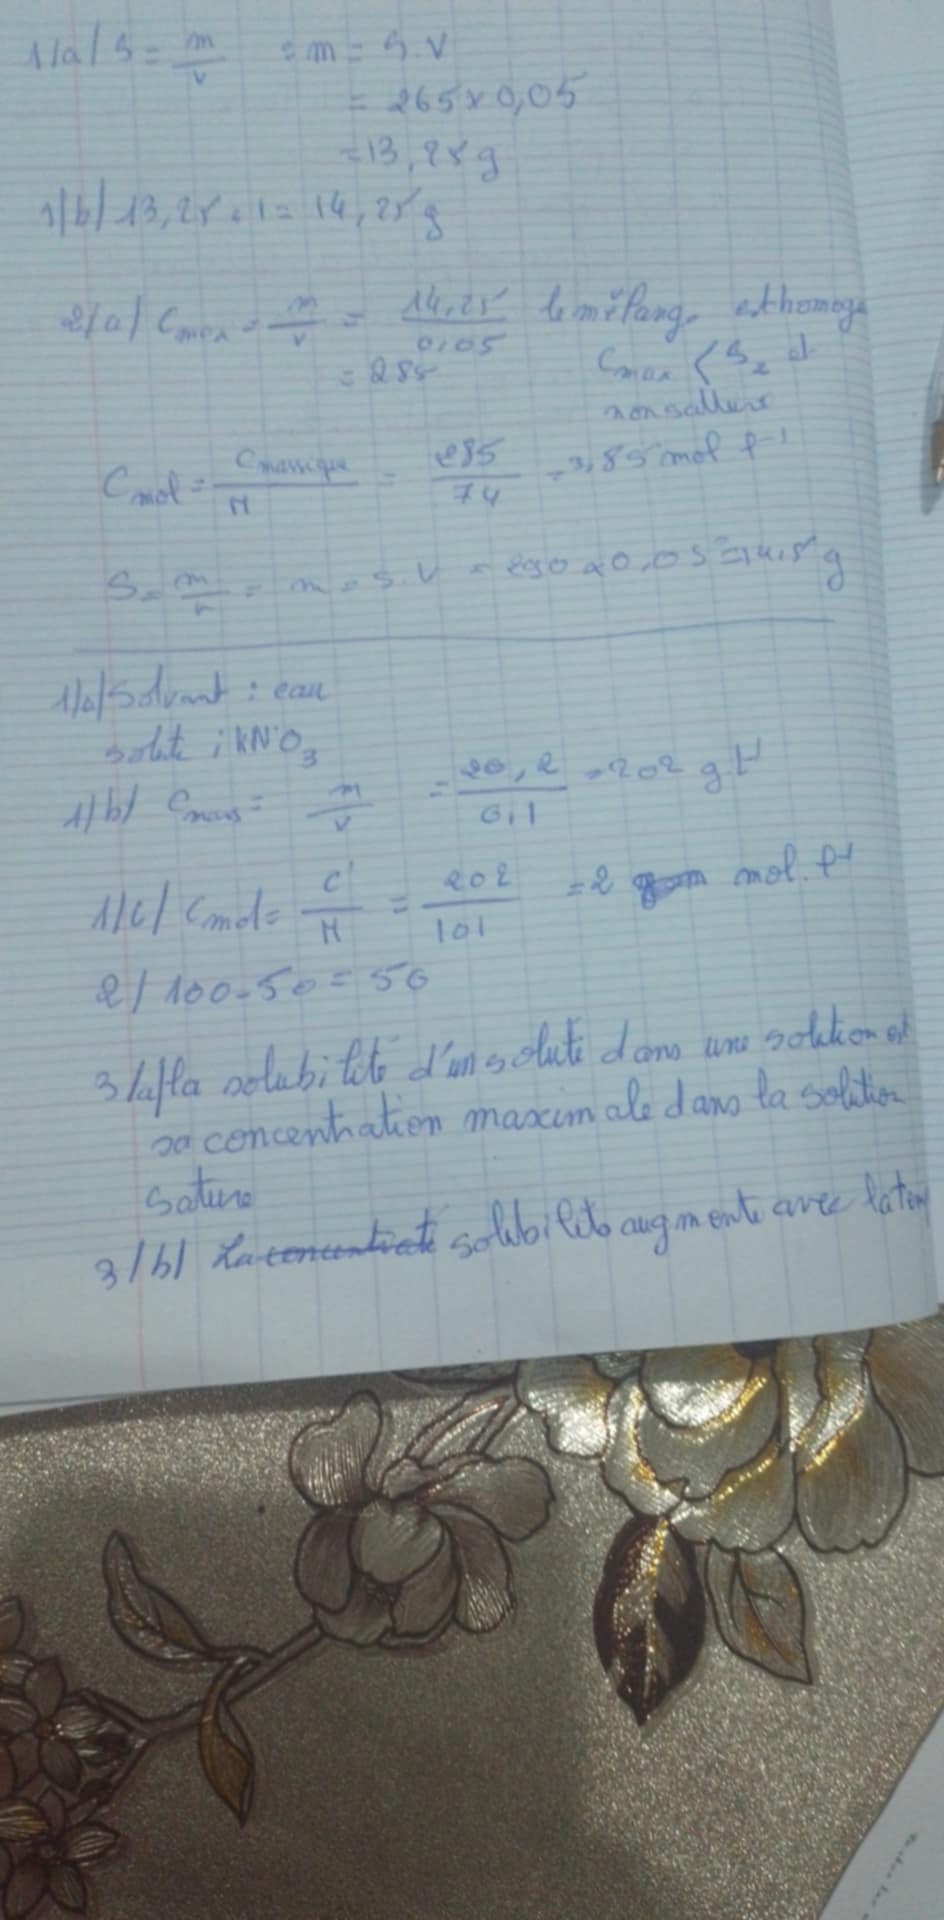 1/a/ S = m/v : m = S.V
= 265 x 0,05
= 13,25 g
1/b/ 13,25 + 1 = 14,25 g
2/a/ Cmax = m/v = 14,25/0,05 le mélange est homog
= 285 Cmax < S2 et
non
Cmol = Cmassique/M = 285/74 = 3,85 mol l-1
S = m/v = m = S.V = 290 x 0,05 = 14,5 g
1/a/ Solvant : eau
soluté : kNO3
1/b/ Cmass = m/v = 20,2/0,1 = 202 g.l-1
1/c/ Cmol = C/M = 202/101 = 2 mol.l-1
2/ 100-50 = 50
3/a/ la solubilité d'un soluté dans une solution est
sa concentration maximale dans la solution
Sature
3/b/ La solubilité augmente avec la tem